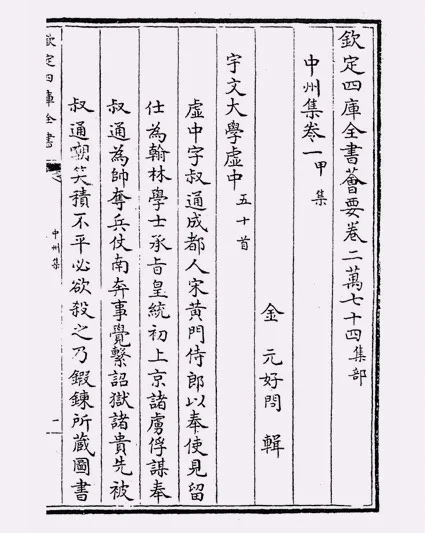 欽定四庫全書薈要卷二萬七千四集部
中州集卷一甲集
金 元好問 輯
宇文大學虛中五十首
虛中字叔通成都人宋黃門侍郎以奉使見留
仕為翰林學士承旨皇統初上京諸虜俘謀奉
叔通為帥奪兵仗南奔事覺繫詔獄諸貴先被
叔通嘲笑積不平必欲殺之乃鍛鍊所蔵圖書
欽定四庫全書
中州集
一